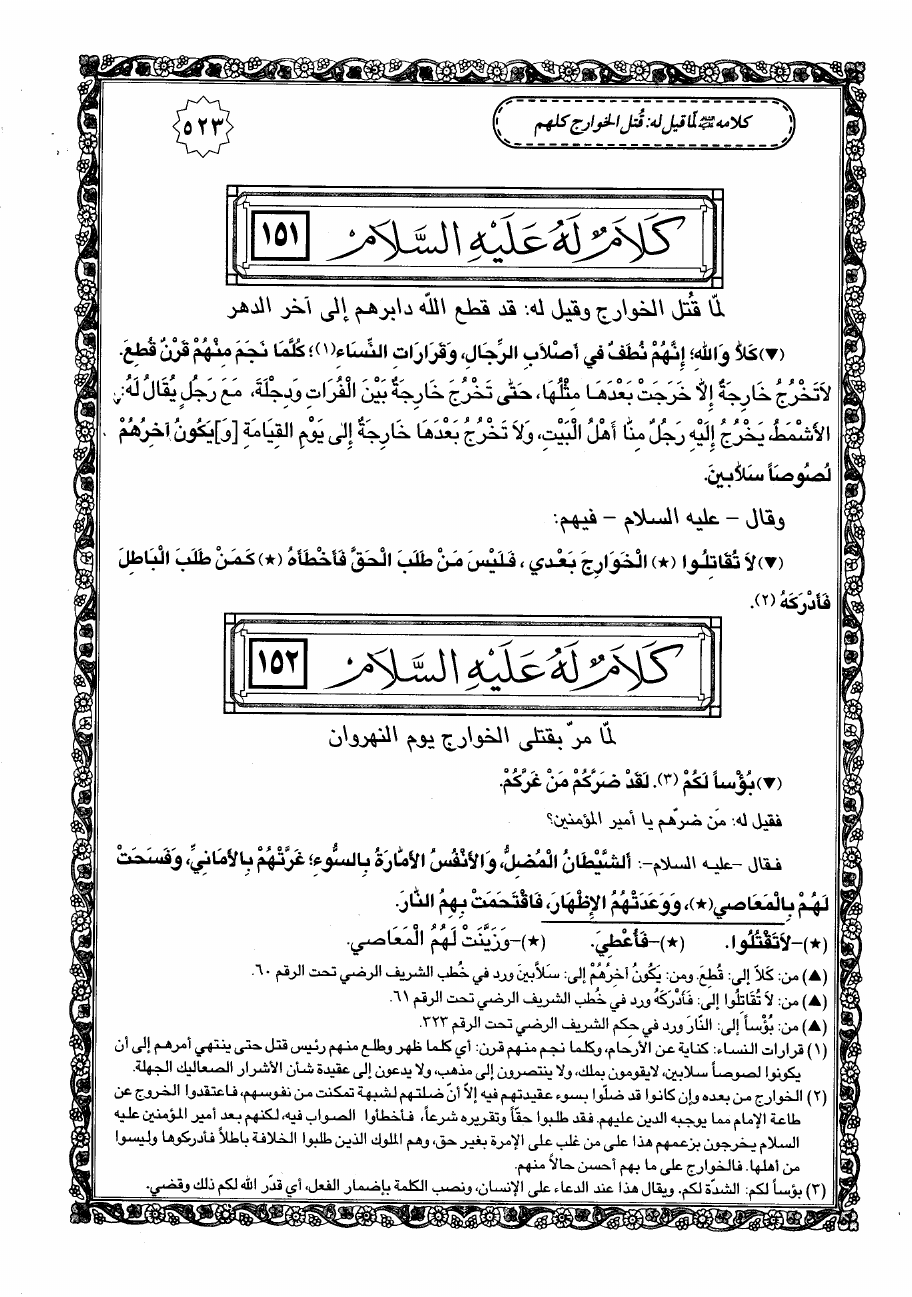 كلامه ﵇ لمّا قيل له: قُتل الخوارج كلهم
٥٢٣
كَلَامٌ لَهُ عَلَيْهِ السَّلَامُ
١٥١
لمّا قُتل الخوارج وقيل له: قد قطع اللّه دابرهم إلى آخر الدهر
(▼) كَلاَّ وَاللّهِ؛ إِنَّهُمْ نُطَفٌ في أَصْلاَبِ الرِّجَالِ، وَقَرَارَاتِ النِّسَاءِ(١)؛ كُلَّمَا نَجَمَ مِنْهُمْ قَرْنٌ قُطِعَ.
لاَتَخْرُجُ خَارِجَةٌ إِلاَّ خَرَجَتْ بَعْدَهَا مِثْلُهَا، حَتّى تَخْرُجَ خَارِجَةٌ بَيْنَ الْفُرَاتِ وَدِجْلَةَ، مَعَ رَجُلٍ يُقَالُ لَهُ:
الأَشْمَطُ، يَخْرُجُ إِلَيْهِ رَجُلٌ مِنّا أَهْلُ الْبَيْتِ، وَلاَ تَخْرُجُ بَعْدَهَا خَارِجَةٌ إِلى يَوْمِ القِيَامَةِ [وَ]يَكُونُ آخِرُهُمْ
لُصُوصاً سَلاَّبينَ.
وقال – عليه السلام – فيهم:
(▼) لاَ تُقَاتِلُوا (★) الْخَوَارِجَ بَعْدي، فَلَيْسَ مَنْ طَلَبَ الْحَقَّ فَأَخْطَأَهُ (★) كَمَنْ طَلَبَ الْبَاطِلَ
فَأَدْرَكَهُ (٢).
كَلَامٌ لَهُ عَلَيْهِ السَّلَامُ
١٥٢
لمّا مرّ بقتلى الخوارج يوم النهروان
(▼) بُؤْساً لَكُمْ (٣). لَقَدْ ضَرَّكُمْ مَنْ غَرَّكُمْ.
فقيل له: مَن ضرّهم يا أمير المؤمنين؟
فقال -عليه السلام-: اَلشَّيْطَانُ الْمُضِلُّ، وَالأَنْفُسُ الأَمَّارَةُ بِالسُّوءِ؛ غَرَّتْهُمْ بِالأَمَانِيِّ، وَفَسَحَتْ
لَهُمْ بِالْمَعَاصي(★)، وَوَعَدَتْهُمُ الإِظْهَارَ، فَاقْتَحَمَتْ بِهِمُ النَّارَ.
(★)-لاَتَقْتُلُوا. (★)-فَأُعْطِيَ. (★)-وَزَيَّنَتْ لَهُمُ الْمَعَاصي.
(▲) من: كَلاَّ إلى: قُطِعَ. ومن: يَكُونُ آخِرُهُمْ إلى: سَلاَّبينَ ورد في خُطب الشريف الرضي تحت الرقم ٦٠.
(▲) من: لاَ تُقَاتِلُوا إلى: فَأَدْرَكَهُ ورد في خُطب الشريف الرضي تحت الرقم ٦١.
(▲) من: بُؤْساً إلى: النّارَ ورد في حكم الشريف الرضي تحت الرقم ٣٢٣.
(١) قرارات النساء: كناية عن الأرحام، وكلما نجم منهم قرن: أي كلما ظهر وطلع منهم رئيس قتل حتى ينتهي أمرهم إلى أن
يكونوا لصوصاً سلابين، لايقومون بملك، ولا ينتصرون إلى مذهب، ولا يدعون إلى عقيدة شأن الأشرار الصعاليك الجهلة.
(٢) الخوارج من بعده وإن كانوا قد ضلّوا بسوء عقيدتهم فيه إلاّ أنّ ضلتهم لشبهة تمكنت من نفوسهم، فاعتقدوا الخروج عن
طاعة الإمام مما يوجبه الدين عليهم. فقد طلبوا حقّاً وتقريره شرعاً، فأخطأوا الصواب فيه، لكنهم بعد أمير المؤمنين عليه
السلام يخرجون بزعمهم هذا على من غلب على الإمرة بغير حق، وهم الملوك الذين طلبوا الخلافة باطلاً فأدركوها وليسوا
من أهلها. فالخوارج على ما بهم أحسن حالاً منهم.
(٣) بؤساً لكم: الشدّة لكم. ويقال هذا عند الدعاء على الإنسان، ونصب الكلمة بإضمار الفعل، أي قدّر الله لكم ذلك وقضي.